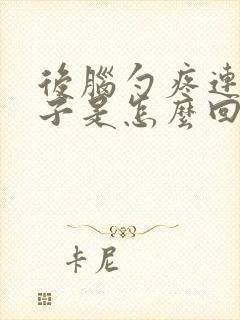 後腦勺疼連
子是怎麼回
卡尼